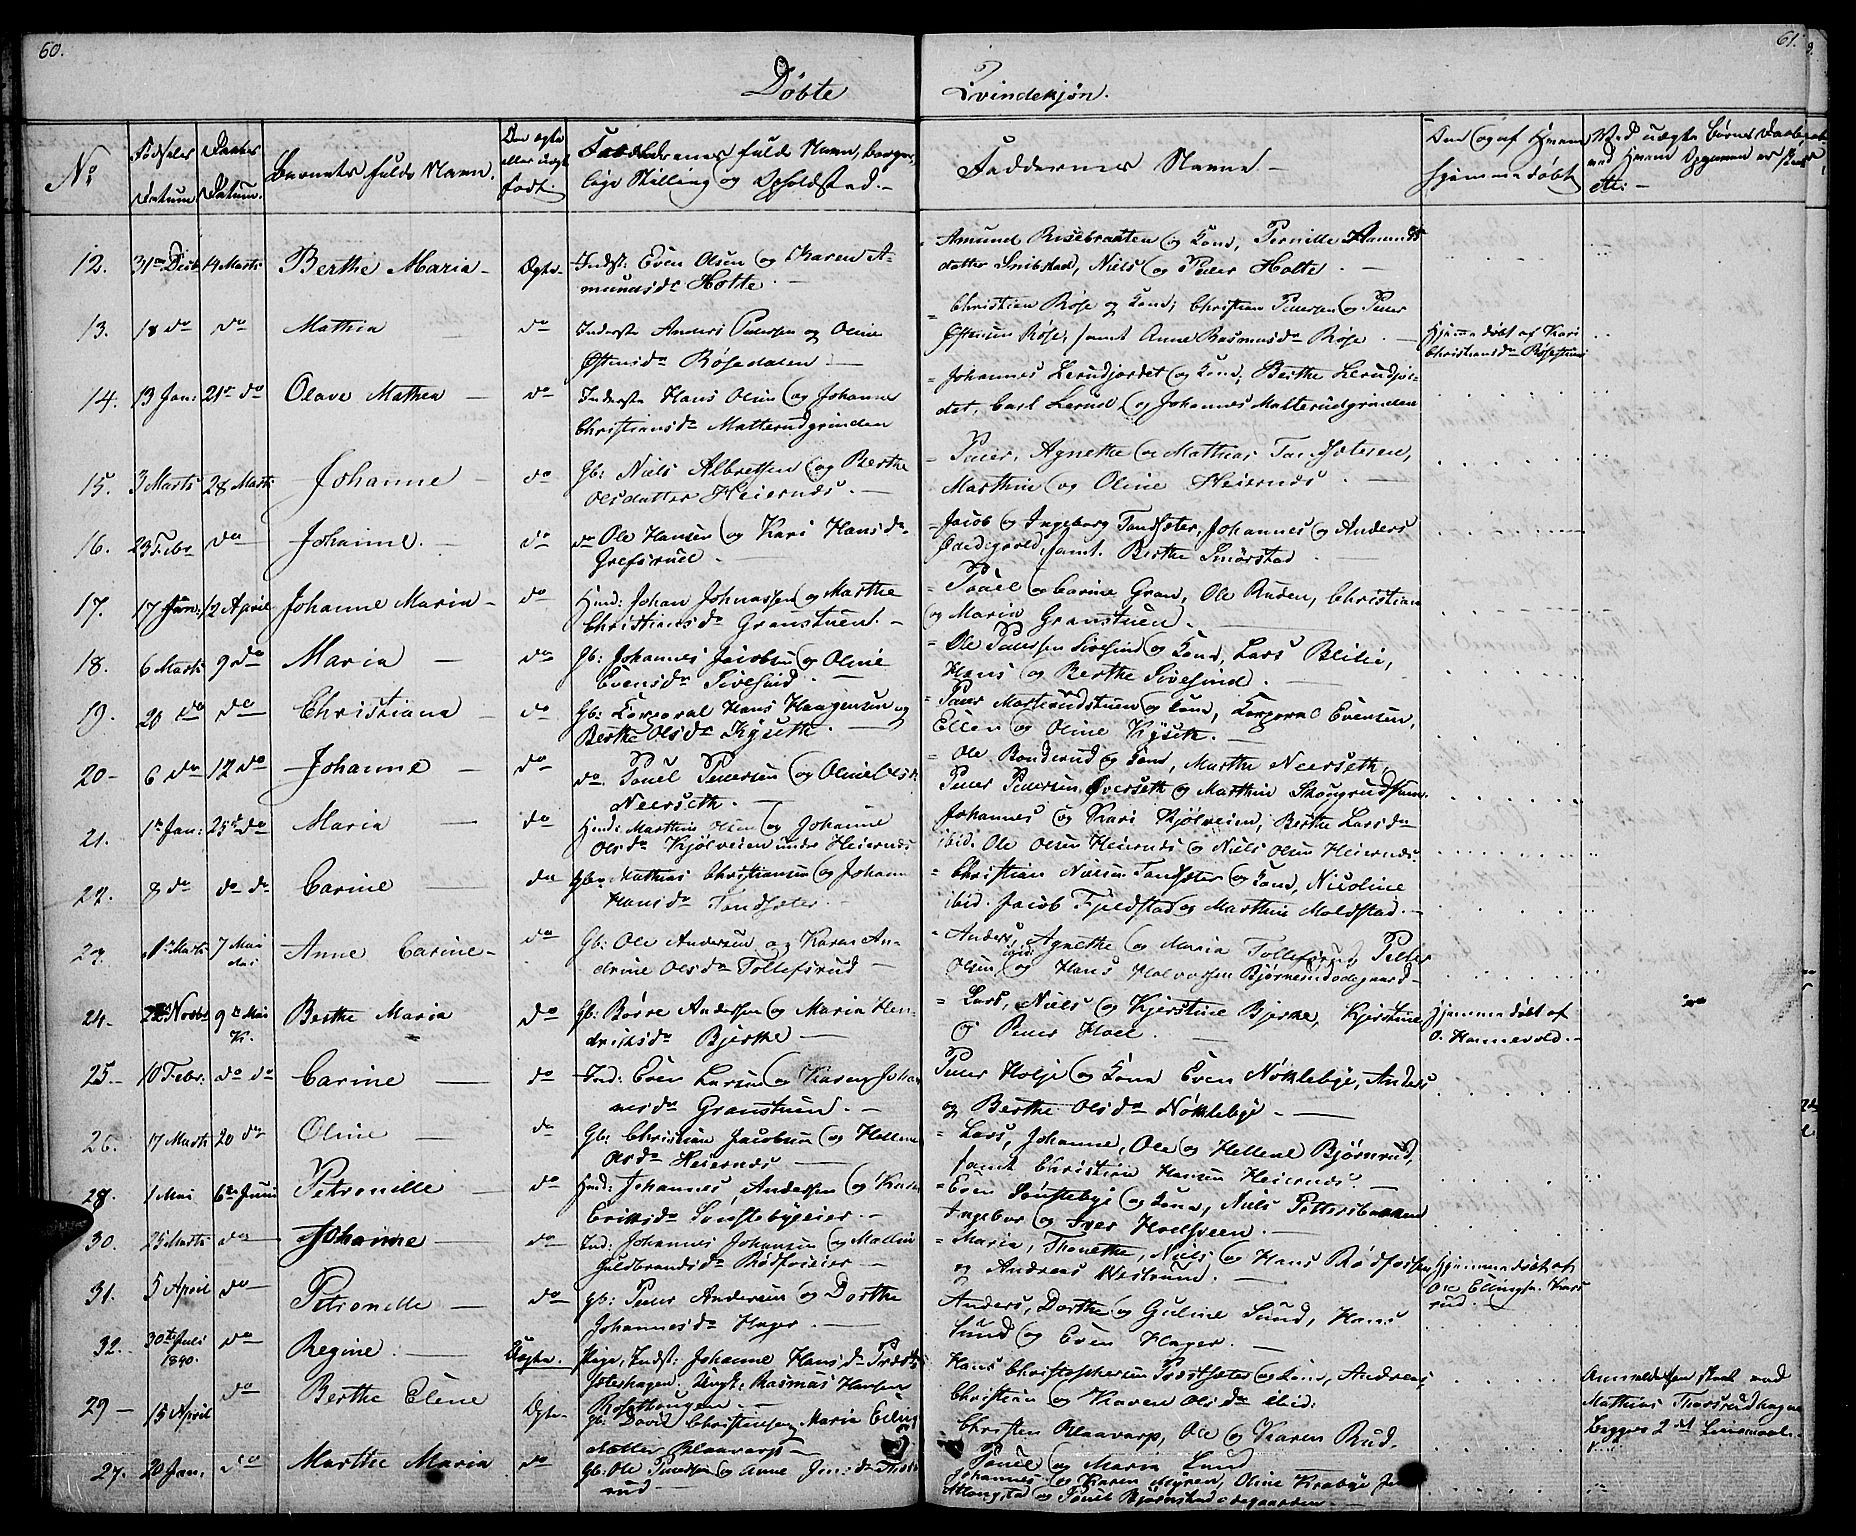 60.
61.
Døbte
Qvindekjøn.
No
Fødsels Datum
Daabs Datum.
Barnets fulde Navn.
Om ægte eller uægte født.
Forældrenes fulde Navn, borgerlige Stilling og Opholdsted.
Faddernes Navne
Om og af Hvem hjemmedøbt
12. 31te Decb 4 Marts Berthe Maria Ægte Indst: Even Olsen og Karen Amundsdr Holte.
Amund Risebraaten og Kone, Pernille Amundsdatter Snibstad, Niels og Peder Holte.
13. 18 do do Mathia do Inderste Anders Pedersen og Oline Østensdr Røsedalen
Christian Røse og Kone, Christian Pedersen og Peder Østensen Røse, samt Anne Rasmusdr Røse. Hjemmedøbt af Kari Christiansdr Røsestuen
14. 13 Jan: 21de do Olave Mathea do Inderste Hans Olsen og Johanne Christiansdr Matterudgrinden
Johannes Lerudjordet og Kone, Berthe Lerudjordet, Carl Lerud, og Johannes Malterudgrinden
15. 3 Marts 28 Marts Johanne do Gb: Niels Albretsen og Berthe Olsdatter Heiernes.
Peder, Agnethe og Mathias Tandsæteren, Marthin og Oline Heiernes.
16. 23 Febr do Johanne. do do Ole Hansen og Kari Hansdr Grefsrud
Jacob og Ingeborg Tandsæter, Johannes og Anders samt Berthe Smørstad
17. 17 Jan: 12 April Johanne Maria do Huusd: Johan Johnassen og Marthe Christiansdr Granstuen.
Pouel og Carine Gran, Ole Ruden, Christian og Maria Granstuen.
18. 6 Marts 9 do Maria do Gb: Johannes Jacobsen og Oline Evensdr Sivesind.
Ole Pedersen Sivesind og Kone, Lars Blilie, Hans og Berthe Sivesind.
19. 20 do do Christiana do Gb: Korporal Hans Haagensen og Berthe Olsdr Kyseth.
Peder Matterudstuen og Kone, Korporal Evensen, Ellen og Oline Kyseth.
20 6 do 12 do Johanne do do Pouel Pedersen og Oline Olsdr Neerseth.
Ole Bondrud og Kone, Marthe Neerseth, Peder Pedersen Øverseth og Marthin Skougrudstuen.
21. 1te Jan: 25de do Maria do Huusd: Marthin Olsen og Johanne Olsdr Kjølveien under Heiernes
Johannes og Kari Kjølveien, Berthe Larsdr ibid. Ole Olsen Heiernes og Niels Olsen Heiernes.
22. 8 do do do Carine do Gb: Mathias Christiansen og Johanne Hansdr Tandsæter.
Christian Nielsen Tandsæter og Kone, Nicoline ibid. Jacob Fjeldstad og Marthin Moldstad.
23. 1te Marts 7 Mai Anne Carine do Gb: Ole Andersen og Karen Andrine Olsdr Tollefsrud
Anders, Agnethe og Maria Tollefsrud, Peder Olsen ibid: og Hans Halvorsen Bjørnerudødegaard
24. 22 Novbr 9de Mai Berthe Maria do Gb: Børre Andersen og Maria Hendriksdr Bjerke
Lars, Niels og Kjerstine Bjerke, Kjerstine og Peder Hoel. Hjemmedøbt af O. Hannevold.
25 10 Febr: do do Carine do Ind: Even Larsen og Karen Johannesdr Granstuen.
Peder Holje og Kone Even Nøklebye, Anders og Berthe Olsdr Nøklebye
26. 17 Marts 20 do Oline do Gb: Christian Jacobsen og Hellene Olsdr Heiernes
Lars, Johanne, Ole og Hellene Bjørnrud, samt Christian Hansen Heiernes.
28. 1 Mai 6te Juni Petronille do Huusd: Johannes Andersen og Karen Eriksdr Sønstebyeeier.
Even Sønstebye og Kone, Niels Pettersbakken Ingebor og Iver Hoelsveen.
30. 25 Marts do Johanne do Ind: Johannes Johansen og Mallin Guldbrandsdr Rødfoseier.
Maria, Thonethe, Niels og Hans Rødfossen og Andreas Westrum. Hjemmedøbt af Ole Ellingsen
31. 5 April do Petronille do Gb: Peder Andersen og Dorthe Johannesdr Hager.
Anders, Dorthe og Guline Sund, Hans Sund og Even Hager.
32. 30te Juli 1840. do Regine Uægte. Pige, Indst: Johanne Hansdr Præstsæterhagen, Ungk: Rasmus Hansen
Hans Christophersen Præstsæter og Kone, Andreas, Christian og Karen Olsdr ibid: Anmeldelsen skeet ved Mathias
29 15 April do Berthe Eline Ægte Gb: David Christensen Maria datter Blaavarp
Christen Blaavarp, Ole og Karen Rud, Pouel og Maria Lund
27. 20 Jan. do Marthe Maria do Gb: Ole og Anne Jensdr
Johannes og Karen Myren, Oline Krabye og Pouel Bjørnstadødegaarden